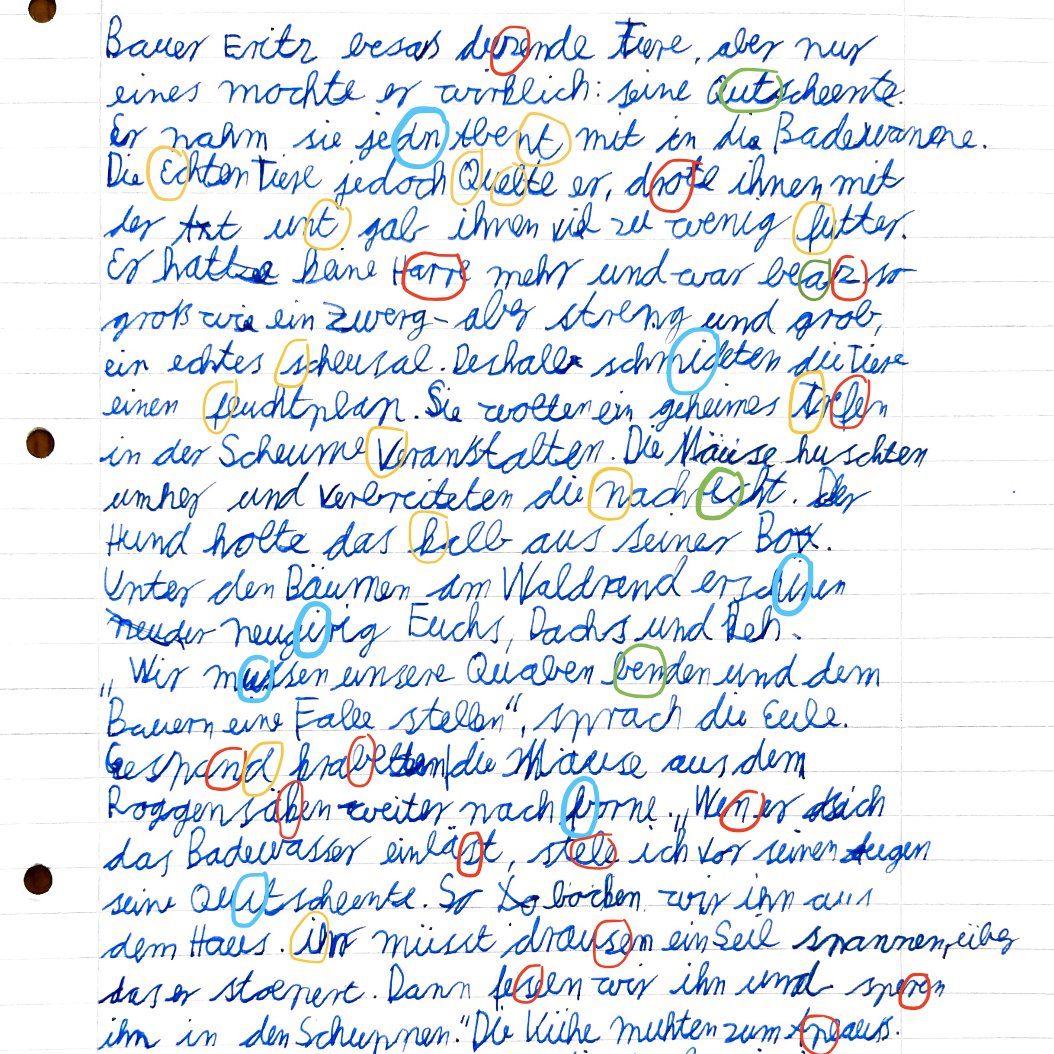 Bauer Fritz besas duzende Tiere, aber nur
eines mochte er wirklich: seine Qutscheente.
Er nahm sie jedn Abent mit in die Badewanne.
Die Echten Tiere jedoch Quelte er, drote ihnen mit
der Axt unt gab ihnen vil zu wenig futter.
Er hatte keine Harre mehr und war bearz so
groß wie ein zwerg – aber streng und grob,
ein echtes scheusal. Deshalb schmideten die Tiere
einen fluchtplan. Sie wolten ein geheimes trefen
in der Scheune Veranstalten. Die Mäuse huschten
umher und verbreiteten die nachricht. Der
Hund holte das kalb aus seiner Box.
Unter den Bäumen am Waldrand erschinen
neugirig Fuchs, Dachs und Reh.
„Wir mussen unsere Qualen benden und dem
Bauern eine Falle stellen“, sprach die Eule.
Gespand krabelten die Mäuse aus dem
Roggen säken weiter nach vorne. „Wen er sich
das Badewasser einläst, stele ich vor seinen Augen
seine Quitscheente. So locken wir ihn aus
dem Haus. ihr müsst drausen ein Seil spannen, über
das er stolpert. Dann feseln wir ihn und speren
ihn in den Schuppen.“ Die Kühe muhten zum Aplaus.